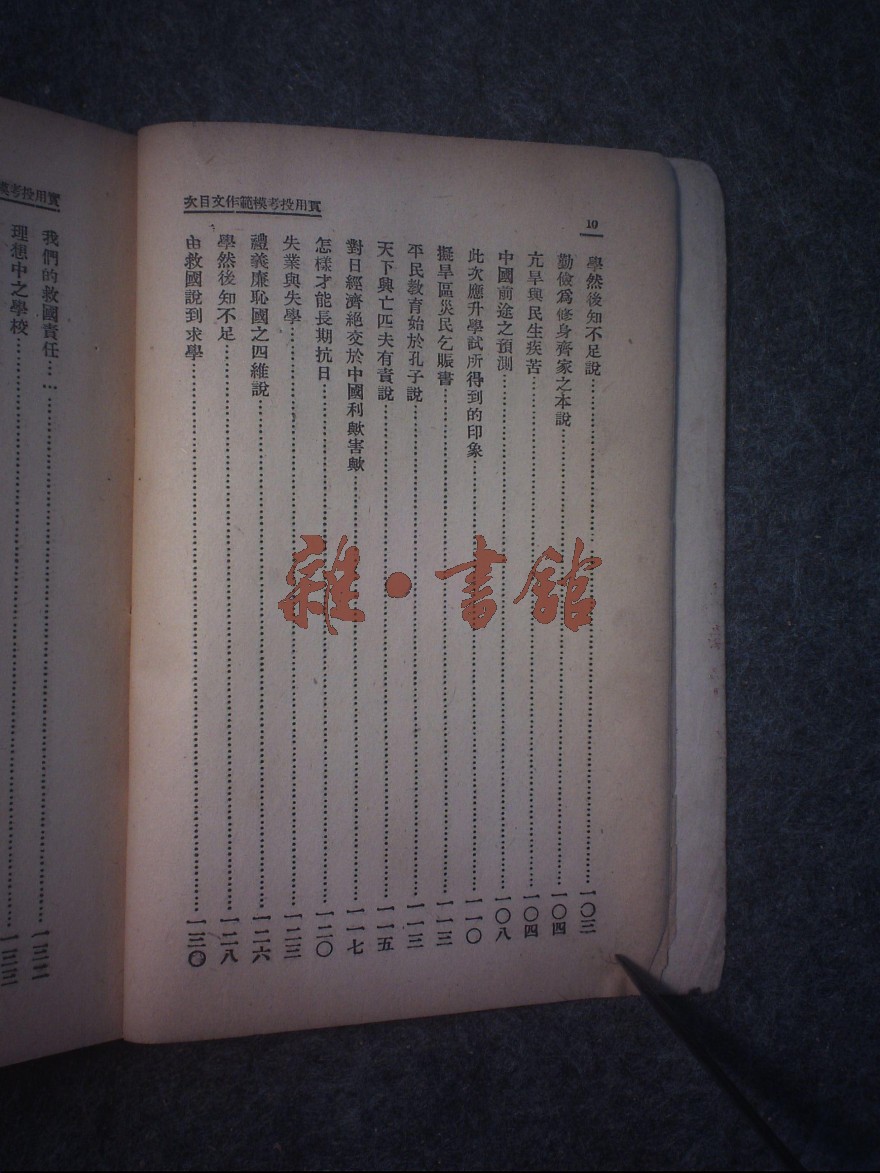 10
實用投考模範作文目次
學然後知不足說……一〇三
勤儉爲修身齊家之本說……一〇四
亢旱與民生疾苦……一〇四
中國前途之預測……一〇八
此次應升學試所得到的印象……一一〇
擬旱區災民乞賑書……一一三
平民敎育始於孔子說……一一三
天下興亡匹夫有責說……一一五
對日經濟絕交於中國利歟害歟……一一七
怎樣才能長期抗日……一二〇
失業與失學……一二三
禮義廉恥國之四維說……一二六
學然後知不足……一二八
由救國說到求學……一三〇
實用投考模
我們的救國責任……一三二
理想中之學校……一三三
雜·書館